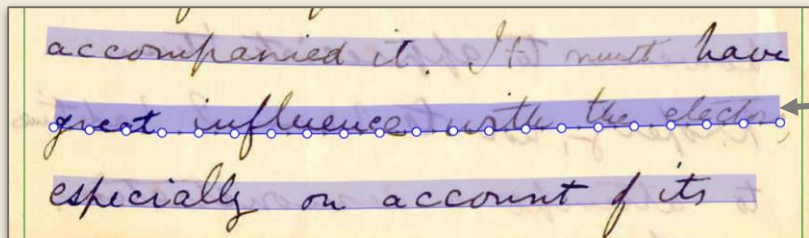 accompanied it. It must have
great influence with the electors,
especially on account of its